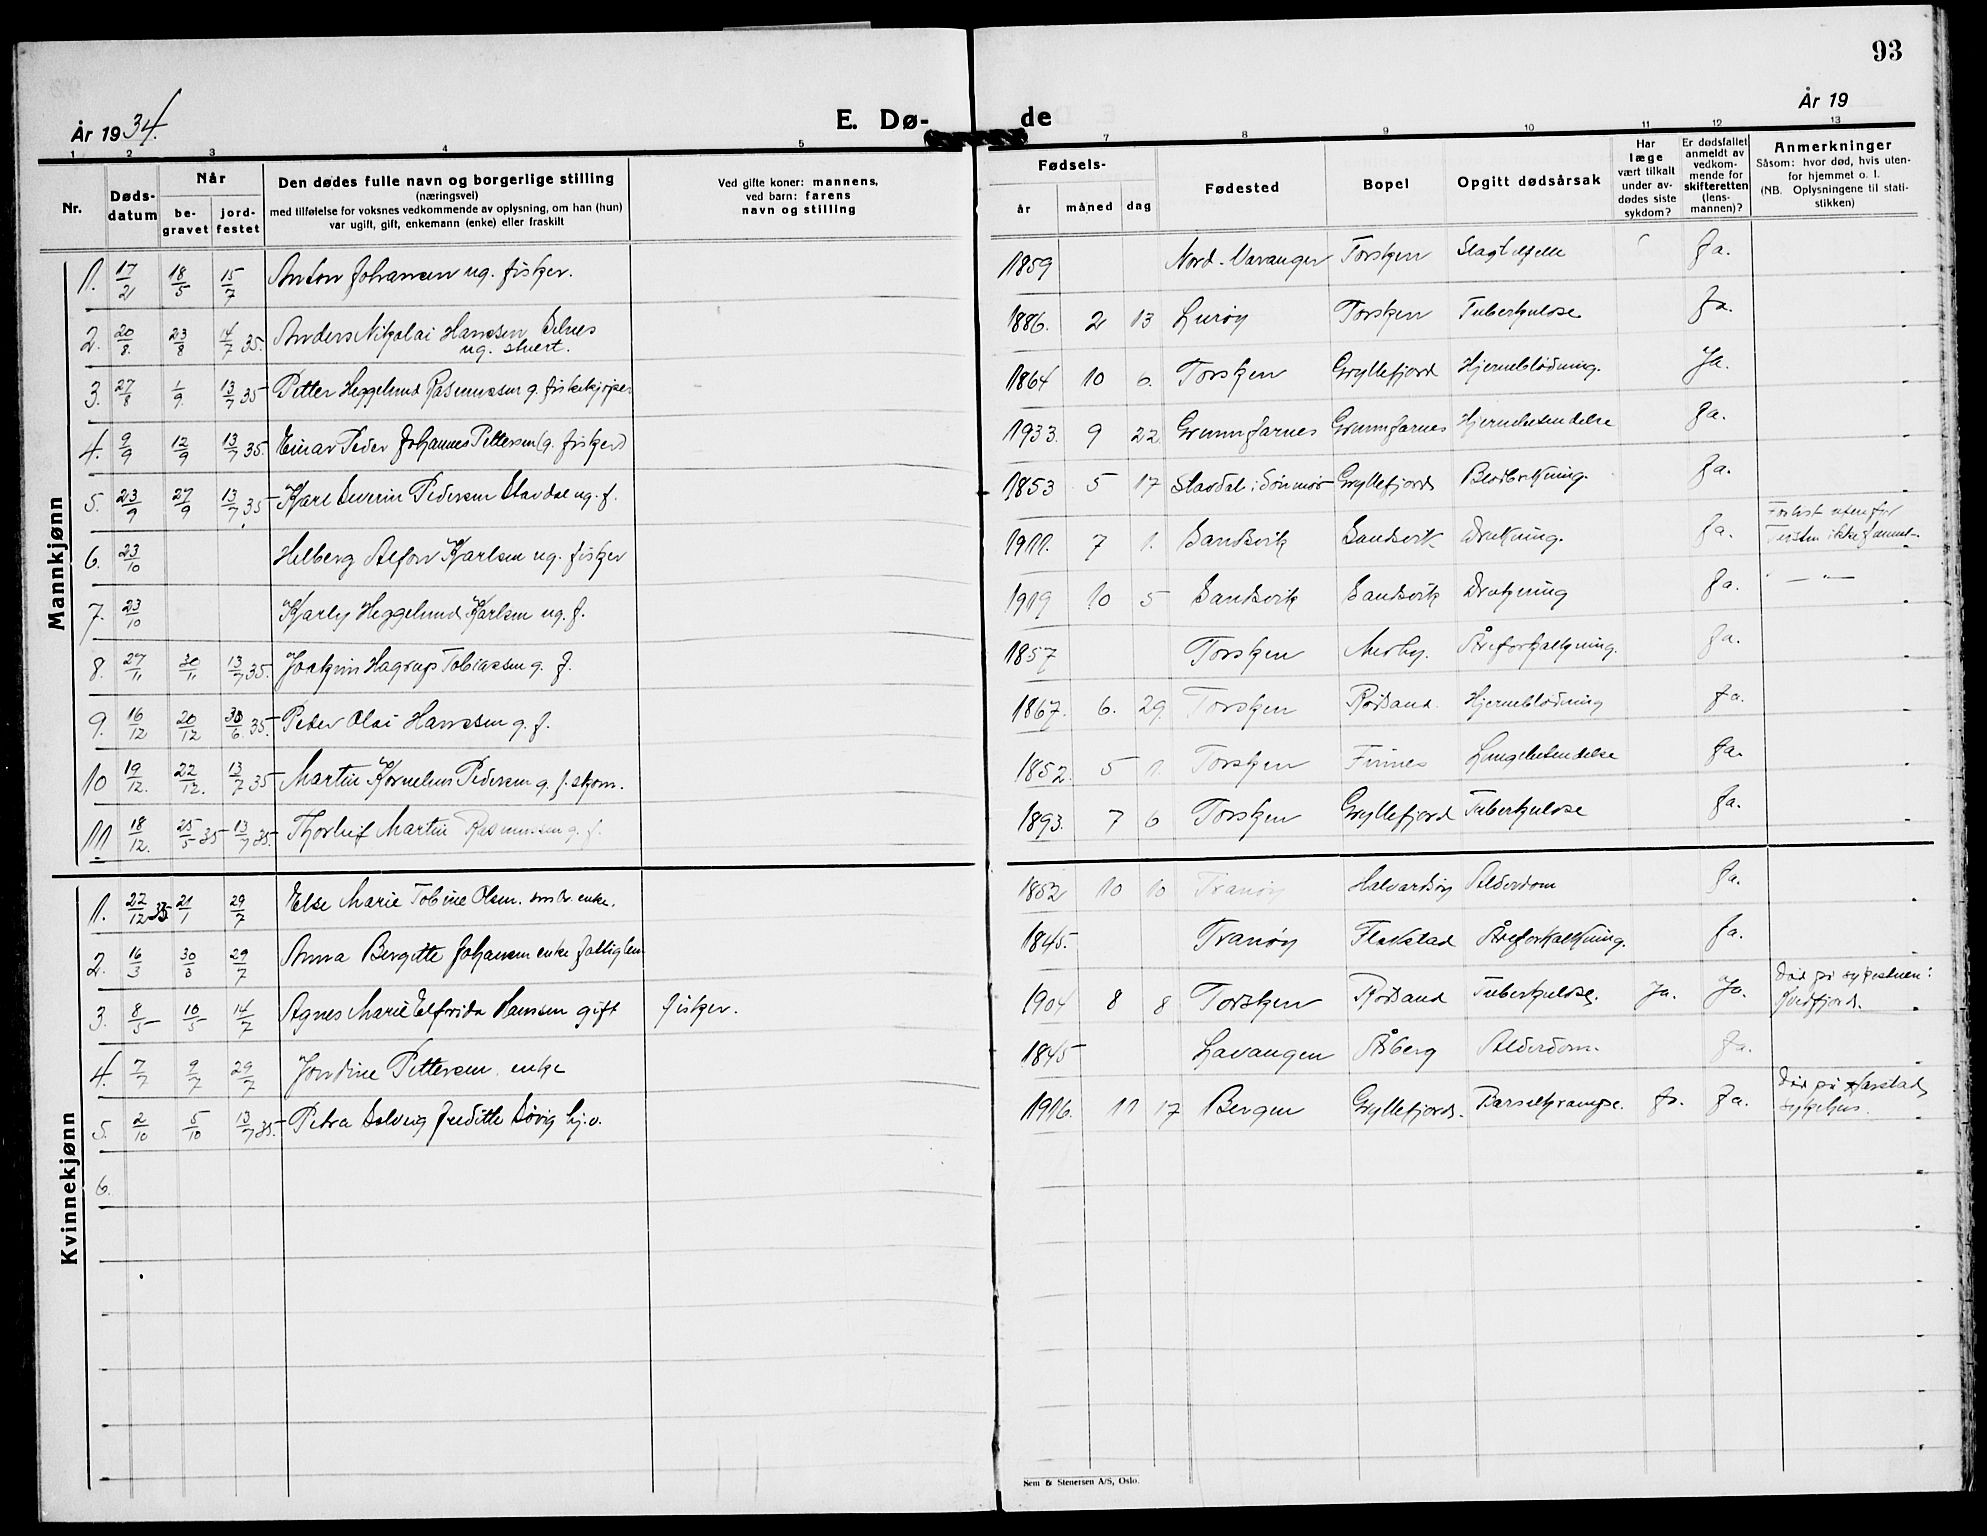 93
År 1934.
E. Dø-
de
År 19
1 2 3 4 5 7 8 9 10 11 12 13
Nr.
Døds-
datum
Når
be-
gravet
jord-
festet
Den dødes fulle navn og borgerlige stilling
(næringsvei)
med tilføielse for voksnes vedkommende av oplysning, om han (hun)
var ugift, gift, enkemann (enke) eller fraskilt
Ved gifte koner: mannens,
ved barn: farens
navn og stilling
Fødsels-
år måned dag
Fødested
Bopel
Opgitt dødsårsak
Har
læge
vært tilkalt
under av-
dødes siste
sykdom?
Er dødsfallet
anmeldt av
vedkom-
mende for
skifteretten
(lens-
mannen)?
Anmerkninger
Såsom: hvor død, hvis uten-
for hjemmet o. l.
(NB. Oplysningene til stati-
stikken)
Mannkjønn
1. 17/2 18/5 15/7 Anton Johansen ug. fisker. 1859 Nord-Varanger Torsken Ja.
2. 20/8. 23/8 14/7 35. Anders Nikolai Hanssen Selnes 1886. 2 13 Lurøy Torsken Tuberkulose Ja.
ug. stuert.
3. 27/8 1/9. 13/7 35 Petter Heggelund Rasmussen g. fiskekjøper 1864 10 6. Torsken Gryllefjord Hjerneblødning. Ja.
4. 9/9 12/9 13/7 35. Einar Peder Johannes Pettersen (g. fisker) 1933. 9 22. Grunnfarnes Grunnfarnes Hjernebetendelse Ja.
5. 23/9 27/9 13/7 35 Karl Severin Pedersen Stavdal ug. f. 1853 5 17 Stavdal i Søndmør Gryllefjord Ja.
6. 23/10 Helberg Alfon Karlsen ug. fisker 1911. 7 1. Sandsvik Sandsvik Drukning. Ja. Forlist utenfor
Torsken ikke funnet
7. 23/10 Karly Heggelund Karlsen ug. f. 1919 10 5 Sandsvik Sandsvik Drukning Ja. " — " —
8. 27/11 30/11 13/7 35. Joakim Hagrup Tobiassen g. f. 1857 Torsken Åreforkalkning. Ja.
9. 16/12 20/12 30/6. 35. Peder Olai Hanssen g. f. 1867. 6. 29. Torsken Rødsand. Hjerneblødning Ja.
10 19/12. 22/12. 13/7 35 Martin Kornelius Pedersen g. f. skom. 1852. 5 1. Torsken Finnes Lungebetendelse Ja.
11 18/12. 25/5 35 13/7 35. Thorleif Martin Rasmussen g. f. 1893. 7 6 Torsken Gryllefjord Tuberkulose Ja.
Kvinnekjønn
1. 22/12 33 21/1 29/7 Else Marie Tobine Olsen. enke. 1852 10 10 Tranøy Halvardsøy Alderdom Ja.
2. 16/3 30/3 29/7 Anna Bergitte Johansen enke fattiglem 1845. Tranøy Flakstad Åreforkalkning. Ja.
3. 8/5 10/5 14/7 Agnes Marie Elfrida Hanssen gift fisker. 1904 8 8 Torsken Rødsand Tuberkulose. Ja. Ja. Død på sykestuen i
Kvæfjord.
4. 7/7 9/7 29/7 Jordine Pettersen enke 1845 Lavangen Åsberg Alderdom. Ja.
5. 2/10 5/10 13/7 35. Petra Solveig Juditte Søvig hj. v. 1916. 11 17 Bergen Gryllefjord. Barselkrampe. Ja. Ja. Død på Harstad
sykehus.
6.
Sem & Stenersen A/S, Oslo.